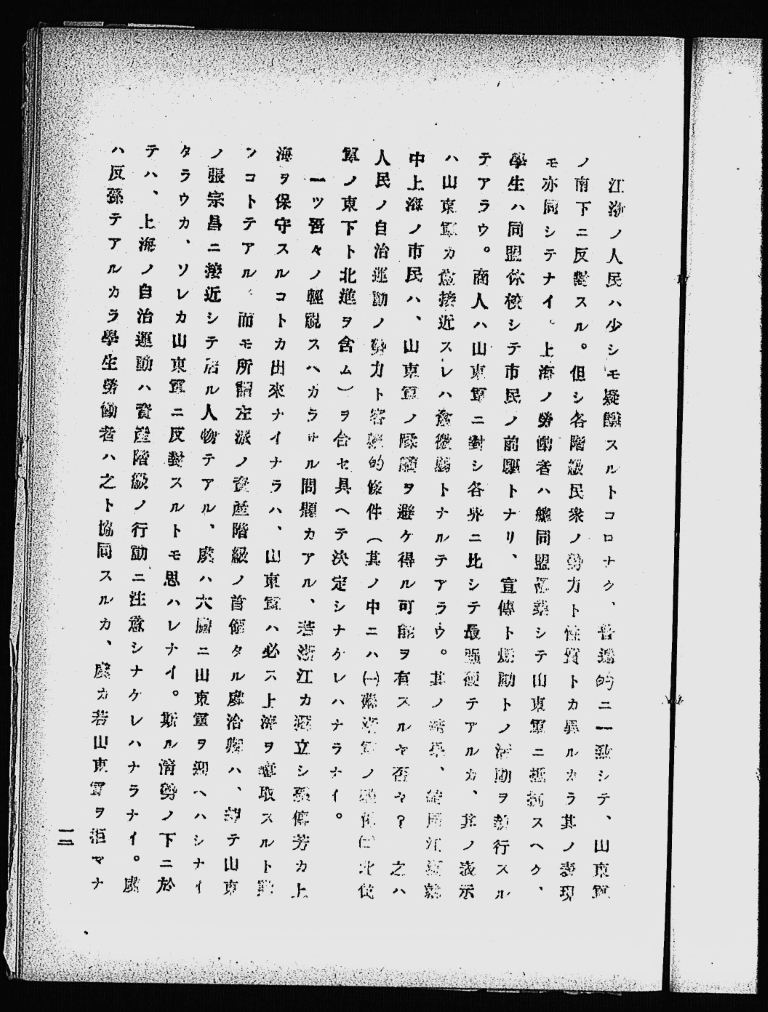 江浙ノ人民ハ少シモ疑懼スルトコロナク、普遍的ニ一致シテ、山東軍
ノ南下ニ反對スル。但シ各階級民衆ノ勢力ト性質トカ異ルカラ其ノ表現
モ亦同シテナイ。上海ノ勞働者ハ總同盟罷業シテ山東軍ニ抵抗スヘク、
學生ハ同盟休校シテ市民ノ前驅トナリ、宣傳ト煽動トノ活動ヲ執行スル
テアラウ。商人ハ山東軍ニ對シ各界ニ比シテ最强硬テアルカ、其ノ表示
ハ山東軍カ愈接近スレハ愈微弱トナルテアラウ。其ノ結果、
中上海ノ市民ハ、山東軍ノ蹂躪ヲ避ケ得ル可能ヲ有スルヤ否ヤ？之ハ
人民ノ自治運動ノ勢力ト客觀的條件（其ノ中ニハ㈠ 軍ノ ㈡北伐
軍ノ東下ト北進ヲ含ム）ヲ合セ具ヘテ決定シナケレハナラナイ。
一ツ吾々ノ輕視スヘカラサル問題カアル、若浙江カ獨立シ孫傳芳カ上
海ヲ保守スルコトカ出來ナイナラハ、山東軍ハ必ス上海ヲ奪取スルト
ンコトテアル、而モ所謂左派ノ資產階級ノ首領タル虞洽卿ハ、却テ山東
ノ張宗昌ニ接近シテ居ル人物テアル、虞ハ六 ニ山東軍ヲ迎ヘハシナイ
タラウカ、ソレカ山東軍ニ反對スルトモ思ハレナイ。斯ル情勢ノ下ニ於
テハ、上海ノ自治運動ハ資產階級ノ行動ニ注意シナケレハナラナイ。虞
ハ反孫テアルカラ學生勞働者ハ之ト協同スルカ、虞カ若山東軍ヲ拒マナ
一二